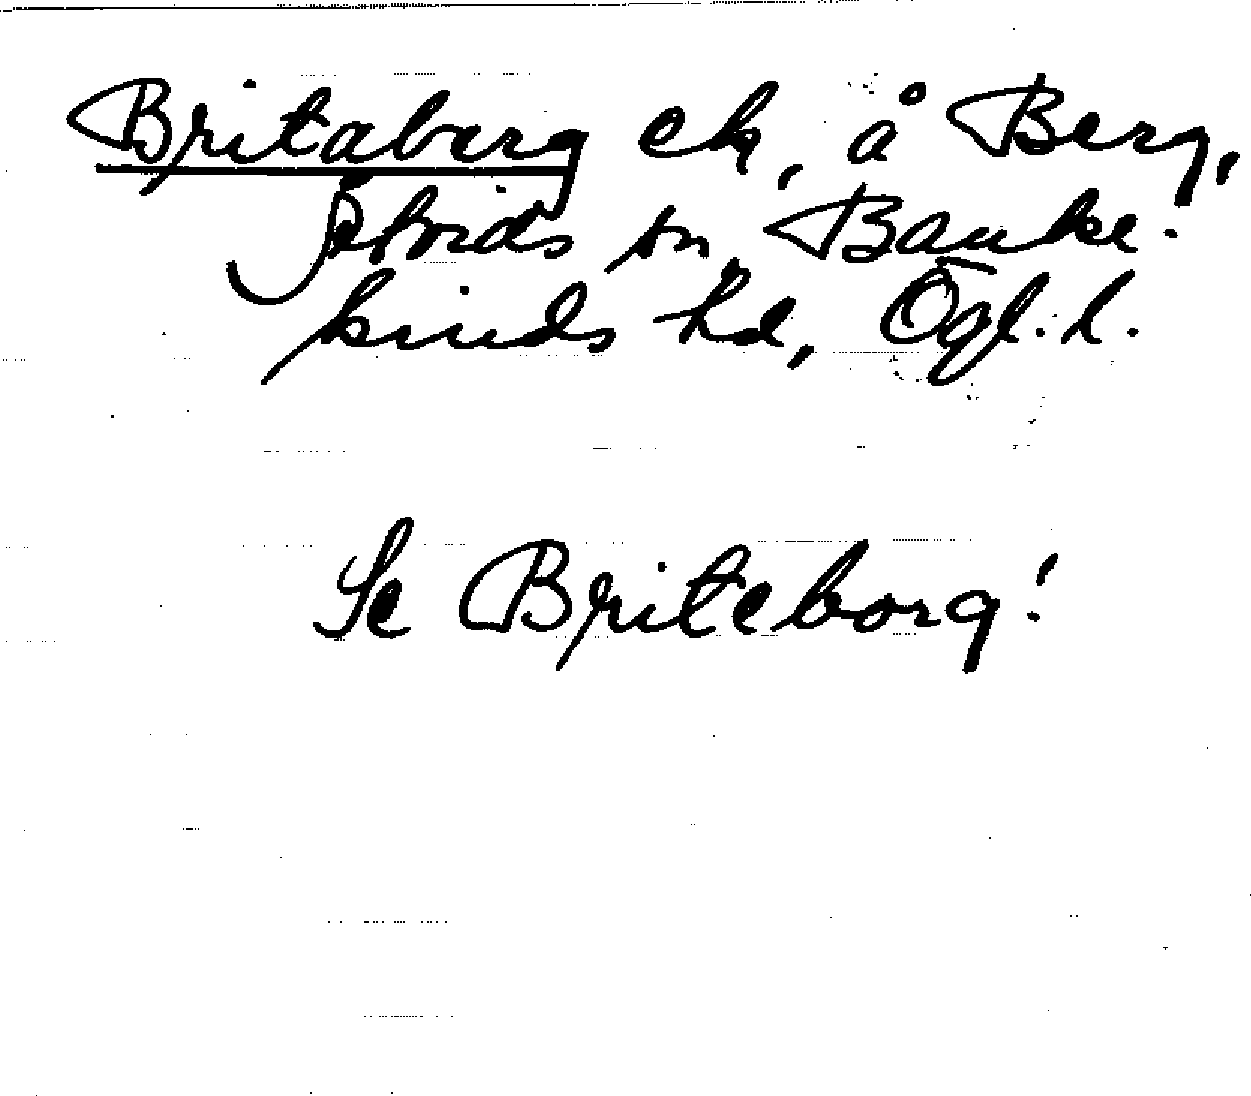 Britaberg ek, å Berg,
Åtvids sn, Banke-
kinds hd, Ögl. l.
Se Briteborg!